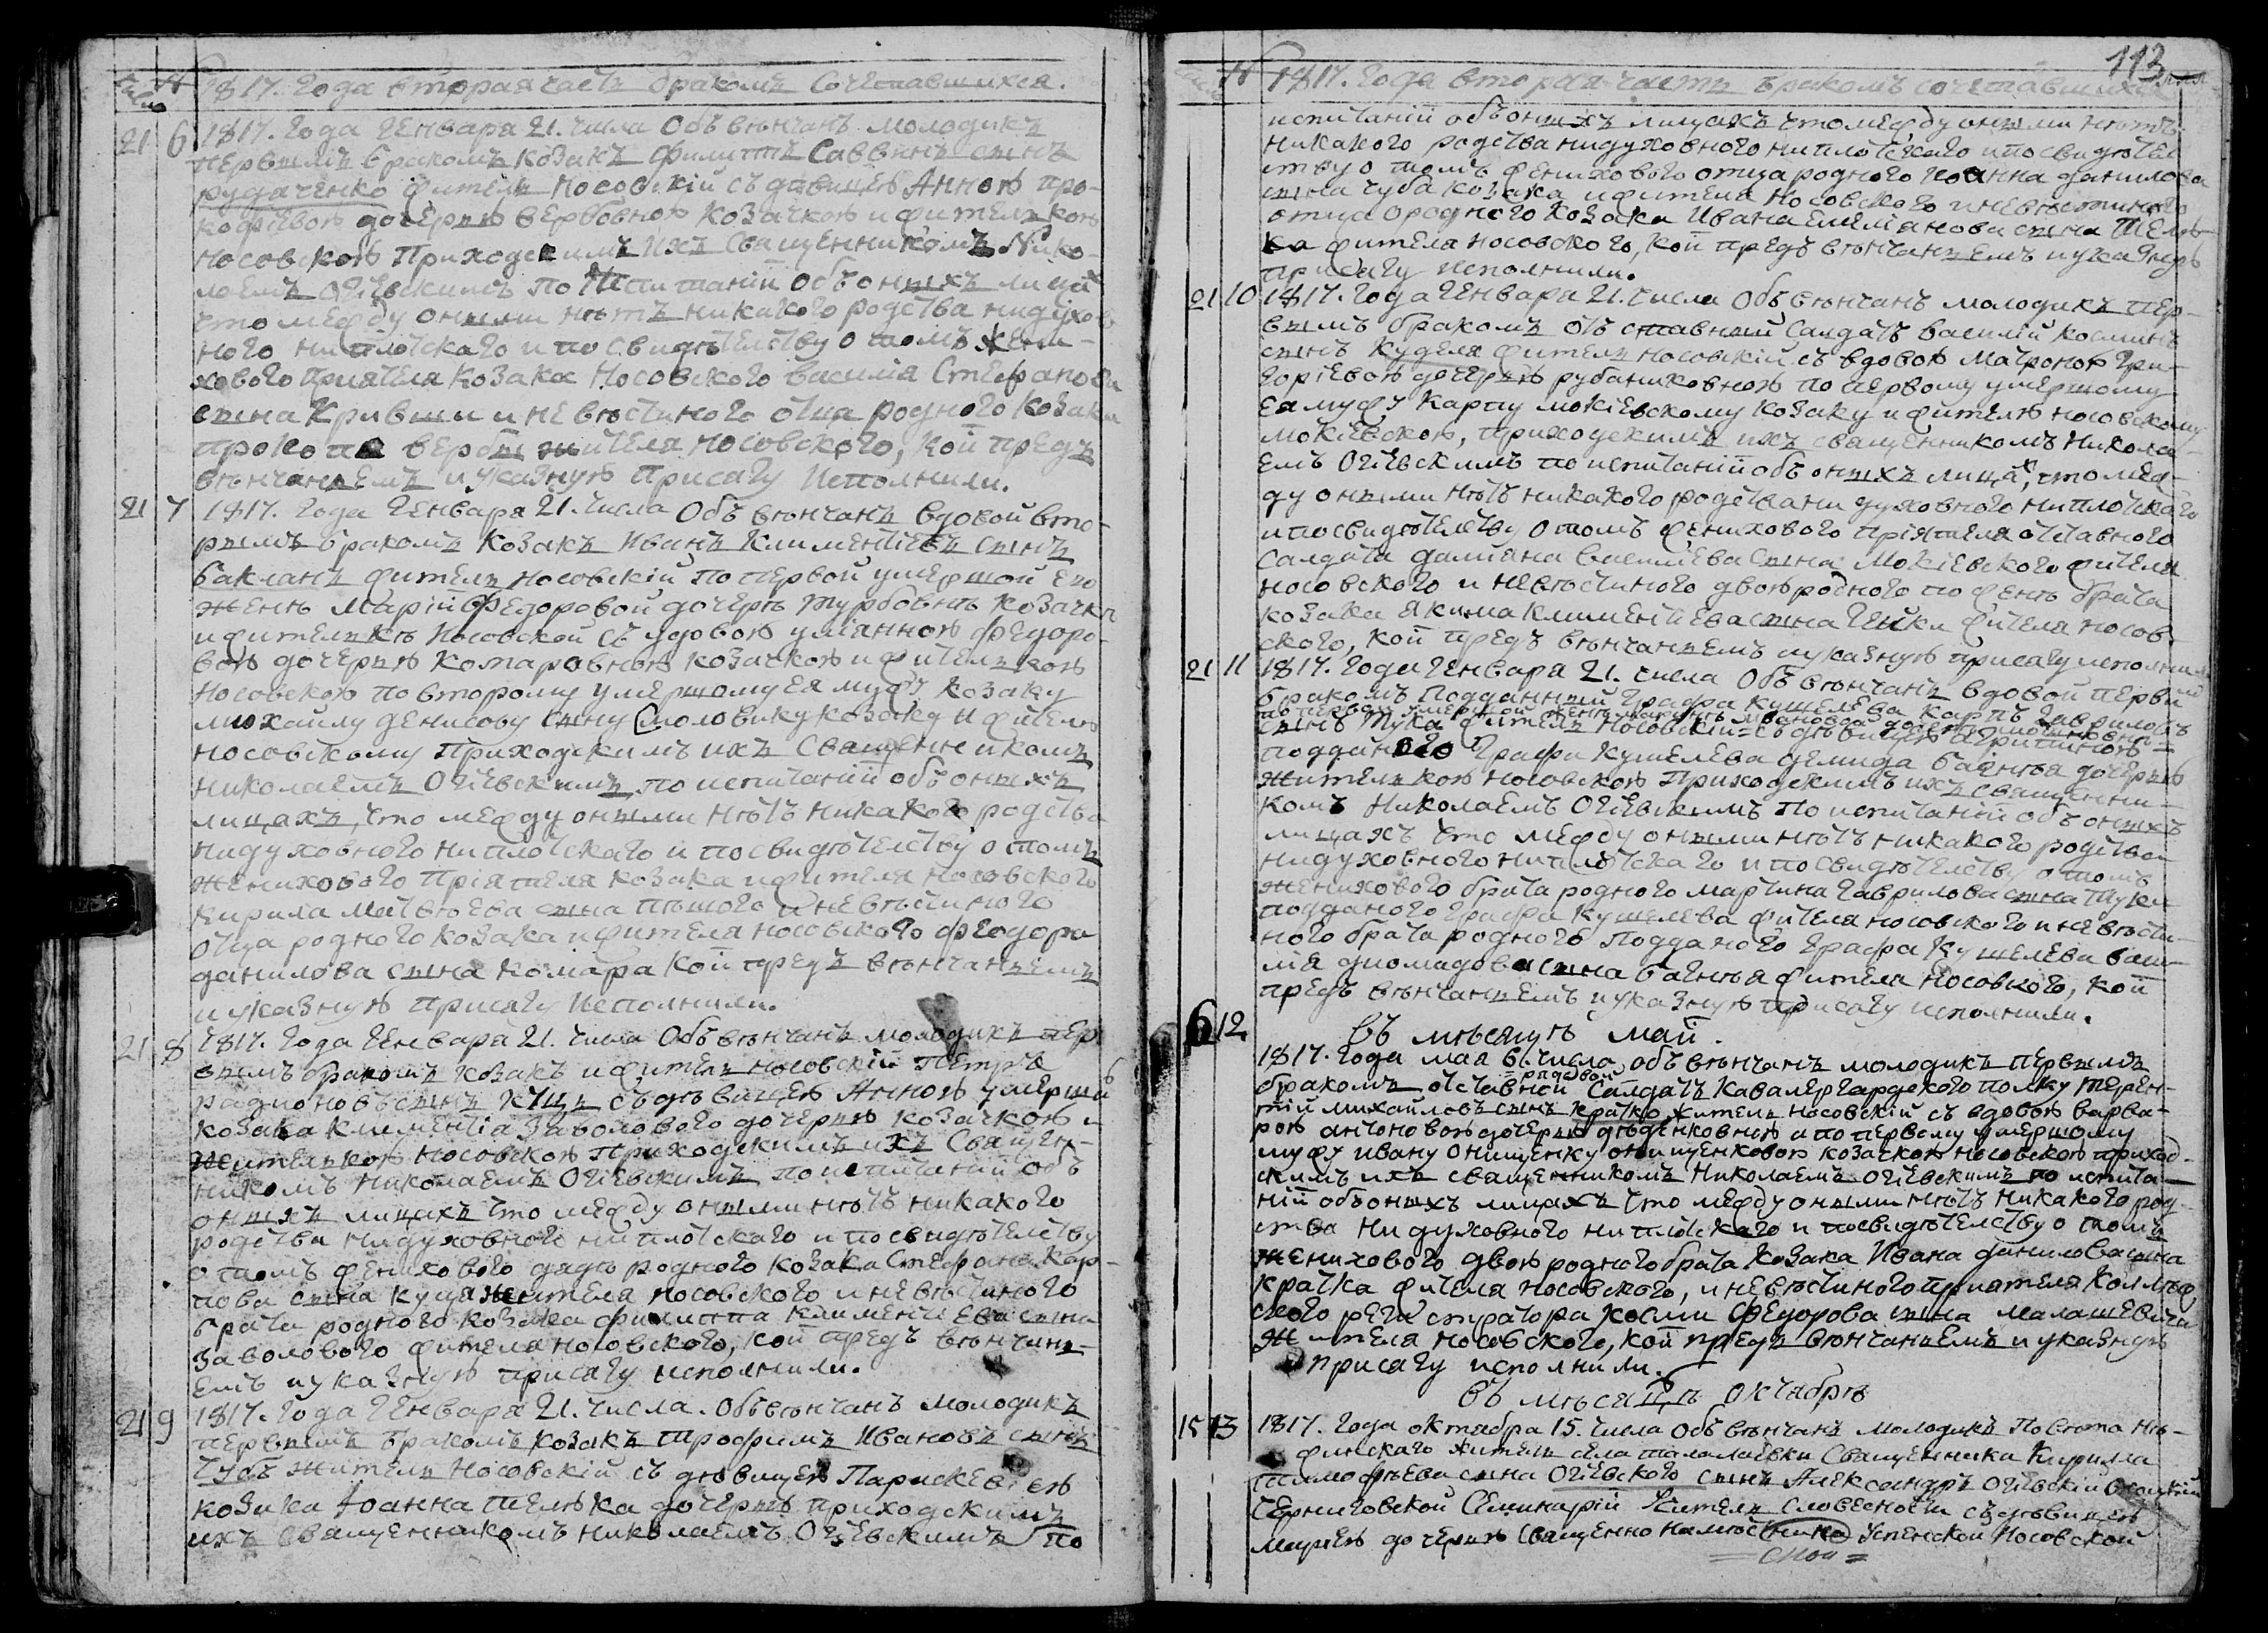 число № 1817. Года вторая часть бракомъ сочетавшихся.
21 6 1817. Года Генваря 21. числа Обвѣнчанъ молодикъ
первымъ бракомъ козакъ Филиппъ Саввинъ сынъ
рудаченко житель Носовскій съ дѣвицею Анною про-
кофіевою дочерью вербовною козачкою и жителькою
носовскою Приходскимъ ихъ Священникомъ Нико-
лаемъ Огіевскимъ по Испитаніи объ онихъ лицахъ
что между оными нѣтъ никакого родства нидухов-
ного ниплотского и по свидѣтелству о томъ жени-
хового приятеля Козака Носовского василия Стефанова
сына Кривши и невѣстиного отца родного Козака
прокопа вербы жителя носовского, кои предъ
вѣнчаніемъ и указную присягу Исполнили.
21 7 1817. Года Генваря 21. числа Обвѣнчанъ вдовой вто-
рымъ бракомъ Козакъ Иванъ Климентіевъ сынъ
бакланъ житель носовскій по первой умершой его
женѣ Маріи Федоровой дочерѣ турбовнѣ козачки
и жителькѣ носовской съ удовою уліянною федоро-
вою дочерью комаровною козачкою и жителькою
Носовскою по второму умершому ея мужу козаку
михайлу денисову сыну Соловику козаку и жителю
носовскому Приходскимъ ихъ Священникомъ
николаемъ Огіевскимъ по испитаніи объ онихъ
лицахъ, что между оными нѣтъ никакого родства
нидуховного ниплотского и по свидѣтелству о томъ
женихового Пріятеля козака и жителя носовского
кирила матвѣева сына пѣшого и невѣстиного
отца родного козака и жителя носовского феодора
данилова сына комара кои предъ вѣнчаніемъ
и указную присягу исполнили.
21 8 1817. Года Генваря 21. числа Обвѣнчанъ молодикъ пер-
вымъ бракомъ козакъ и житель носовскій Петръ
радионовъ сынъ куцъ съ дѣвицею Анною умершого
козака климентіа заволового дочерью козачкою и
жителькою носовскою Приходскимъ ихъ Священ-
никомъ Николаемъ Огіевскимъ по испитаніи объ
онихъ лицахъ что между оными нѣтъ никакого
родства нидуховного ниплотского и по свидѣтелству
о томъ женихового дядѣ родного козака Стефана Кар-
пова сына куца жителя носовского и невѣстиного
брата родного козака филиппа климентіева сына
заволового жителя носовского, кои предъ вѣнчані-
емъ и указную присягу исполнили.
21 9 1817. Года Генваря 21. числа. Обвѣнчанъ молодикъ
первымъ бракомъ козакъ трофимъ Ивановъ сынъ
Чубъ житель Носовскій съ дѣвицею Парискевіею
козака Іоанна телѣка дочерью приходскимъ
ихъ Священникомъ николаемъ Огіевскимъ по
113
число № 1817. Года вторая часть бракомъ сочетавшихся
испитаніи объ онихъ лицахъ что между оными нѣтъ
никакого родства нидуховного ниплотского и по свидѣтел-
ству о томъ женихового отца родного Іоанна данилова
сына чуба козака и жителя носовского и невѣстиного
отца родного козака Ивана емеліянова сына Телѣ-
ка жителя носовского, кои предъ вѣнчаніемъ и указную
присягу исполнили.
21 10 1817. Года Генваря 21. числа Обвѣнчанъ молодикъ пер-
вымъ бракомъ отставный Салдатъ василій косминъ
сынъ кудела житель носовскій съ вдовою матроною гри-
горіевою дочерью рубаниковною по первому умершому
ея мужу Карпу мокіевскому козаку и жителю носовскому
мокіевскою, приходскимъ ихъ священникомъ никола-
емъ Огіевскимъ по испитаніи объ онихъ лицахъ, что меж-
ду оными нѣтъ никакого родства ни духовного ниплотского
и по свидѣтелству о томъ женихового пріятеля отставного
Салдата даміана василиева сына Мокіевского жителя
носовского и невѣстиного двоюродного по женѣ брата
козака якима климентіева сына Гейки жителя носов-
ского, кои предъ вѣнчаніемъ и указную присягу исполнили
21 11 1817. Года Генваря 21. числа Обвѣнчанъ вдовой первый
бракомъ Подданный Графа Кушелева Карпъ Гавриловъ
по первой умершой женѣ
сынъ Тука житель Носовскій съ дѣвицею
подданого Графа Кушелева демида баенѣя дочерью
жителькою носовскою Приходскимъ ихъ Священни-
комъ Николаемъ Огіевскимъ по испитаніи объ онихъ
лицахъ что между оными нѣтъ никакого родства
нидуховного ниплотского и по свидѣтелству о томъ
женихового брата родного мартина Гаврилова сына Туки
подданого Графа Кушелева жителя носовского и невѣсти-
ного брата родного подданого Графа Кушелева васи-
лія диомидова сына баенѣя жителя носовского, кои
предъ вѣнчаніемъ и указную присягу исполнили.
въ мѣсяцѣ май.
6 12 1817. Года мая 6. числа обвѣнчанъ молодикъ первымъ
рядовой
бракомъ отставной Салдатъ кавалергардского полку терен-
тій михайловъ сынъ кратко житель носовскій съ вдовою варва-
рою антоновою дочерью дѣденковною и по первому умершому
мужу ивану онищенку онищенковою козачкою носовскою приход-
скимъ ихъ священникомъ Николаемъ Огіевскимъ по испита-
ніи объ онихъ лицахъ что между оными нѣтъ никакого род-
ства ни духовного ниплотского и по свидѣтелству о томъ
женихового двоюродного брата козака Ивана данилова сына
кратка жителя носовского, и невѣстиного приятеля коллеж-
ского регистратора косми Федорова сына малашевича
жителя носовского, кои предъ вѣнчаніемъ и указную
присягу исполнили.
въ мѣсяцѣ октябрѣ
15 13 1817. Года октября 15. числа Обвѣнчанъ молодикъ Повѣта Нѣ-
жинского житель села талалаевки Священника Кирила
тимофѣева сына Огіевского сынъ Александръ Огіевскій
Черниговской Семинаріи Учитель Словесности съ дѣвицею
маріею дочерью Священно намѣстника Успенской Носовской